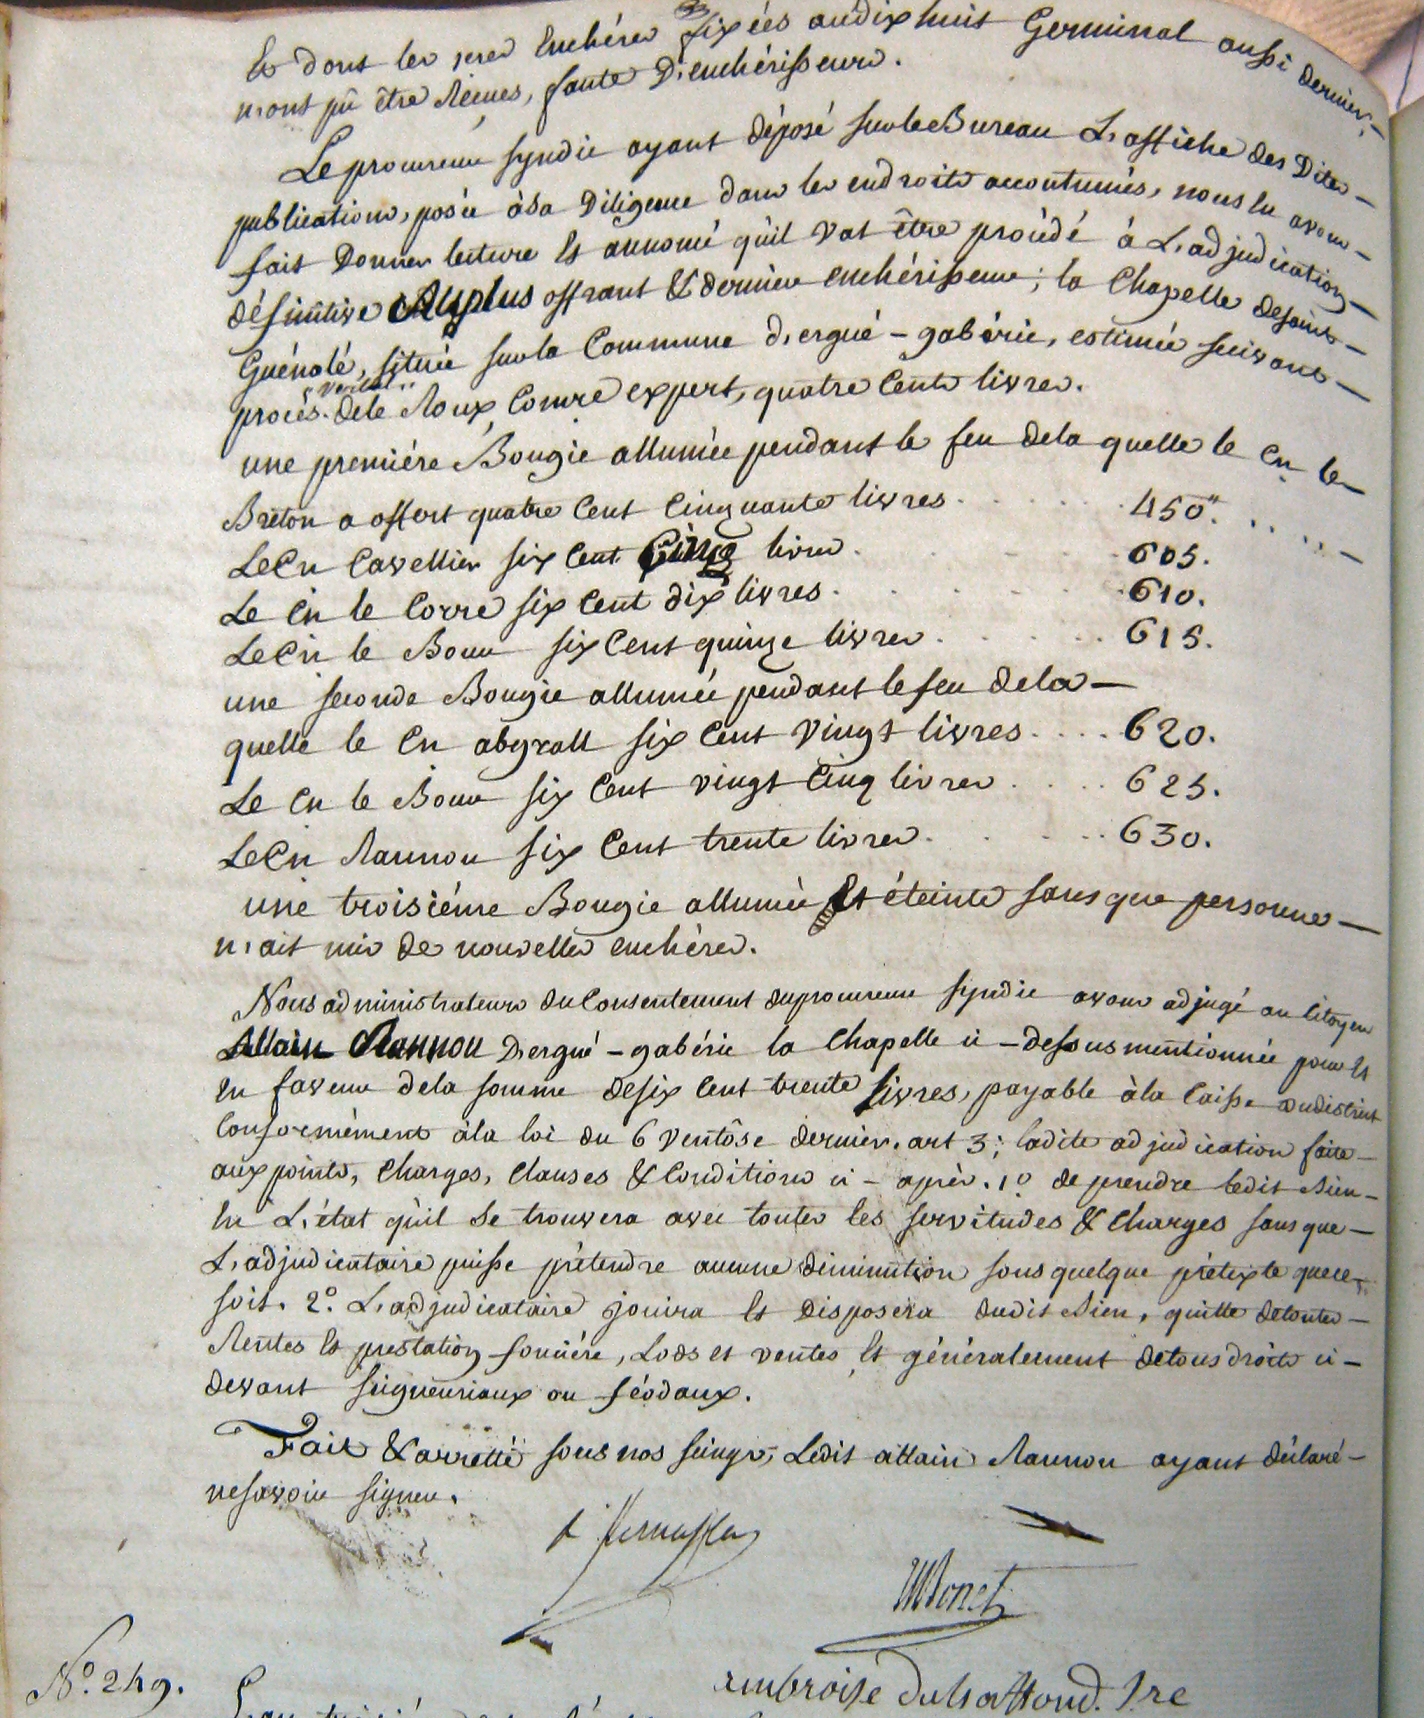 Et dont les 1eres Enchéres fixées au dix huit Germinal aussi dernier,
n'ont pû être Récues, faute D'enchérisseurs.
Le procureur syndic ayant déposé sur le Bureau L'affiche des Dites
publications, posée à sa Diligence dans les endroits accoutumés, nous lu avons
fait Donner lecture Et annoncé qu'il vat être procédé à L'adjudication
définitive Au plus offrant & dernier enchérisseur; la Chapelle de saint
Guénolé, située sur la Commune d'ergué-gabéric, estimée suivant
procés "verbal" de le Roux Comme expert, quatre Cents livres.
une premiére Bougie allumée pendant le feu dela quelle le Cn le
Breton a offert quatre Cent Cinquante livres . . . 450".
Le Cn Cavellier six Cent Cinq livres . . . 605.
Le Cn le Corre six Cent dix livres . . . 610.
Le Cn le Bour six Cent quinze livres . . . 615.
une seconde Bougie allumée pendant le feu dela
quelle le Cn abgrall six Cent vingt livres . . . 620.
Le Cn le Bour six Cent vingt Cinq livres . . . 625.
Le Cn Rannou six Cent trente livres . . . 630.
une troisiéme Bougie allumée Et éteinte sans que personne
n'ait mis de nouvelles enchéres.
Nous administrateurs du Consentement du procureur syndic avons adjugé au Citoyen
Allain Rannou D'ergué-gabéric la Chapelle ci-dessus mentionnée pour Et
En faveur dela somme de six Cent trente livres, payable à la Caisse du district
Conformément à la loi du 6 Ventôse dernier, art 3; ladite adjudication faite
aux points, Charges, Clauses & Conditions ci-aprés. 1º de prendre ledit Bien
En L'état qu'il se trouvera avec toutes les servitudes & Charges sans que
L'adjudicataire puisse prétendre aucune diminution sous quelque prétexte que ce
soit. 2º. L'adjudicataire jouira Et Disposera dudit Bien, quitte de toutes
Rentes Et prestation fonciére, Lods et ventes Et généralement de tous droits ci-
devant seigneuriaux ou féodaux.
Fait & arretté sous nos seings, Ledit allain Rannou ayant déclaré
ne savoir signer.
Nº. 249.